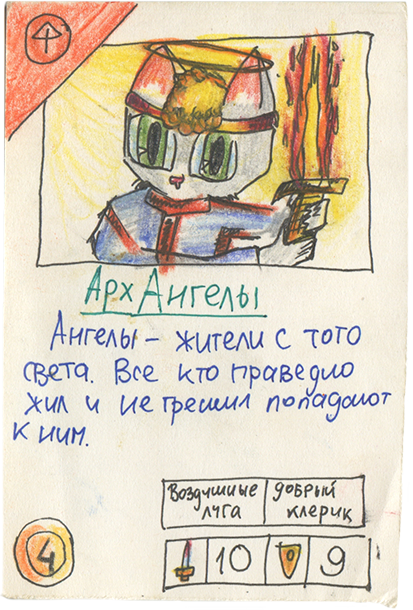 АрхАнгелы
Ангелы – жители с того
света. Все кто праведно
жил и не грешил попадают
к ним.
Воздушные
луга
добрый
клерик
4
10
9